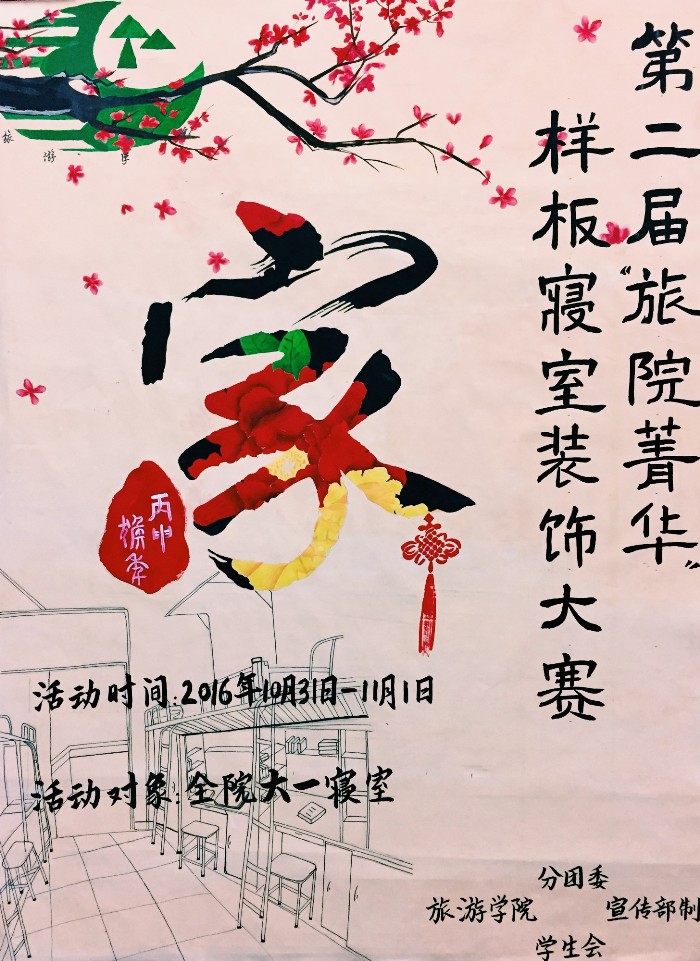 第二届“旅院菁华”
样板寝室装饰大赛
旅游学
家
丙申
活动时间:2016年10月31日-11月1日
活动对象:全院大一寝室
分团委
旅游学院 宣传部制
学生会